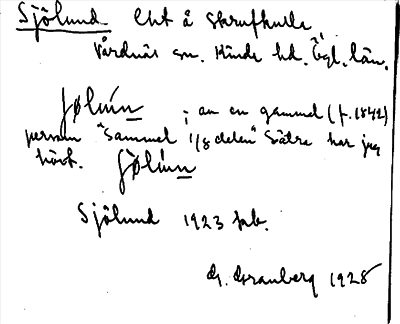 Sjölund Lht å Skrufkulla
Vårdnäs sn. Kinda hd. Ögl. län.
jølúın ; av en gammal (f. 1842)
person "Sammel 1/8 delen" Sätra har jag
hört. jølúın
Sjölund 1923 jrb.
G. Granberg 1928